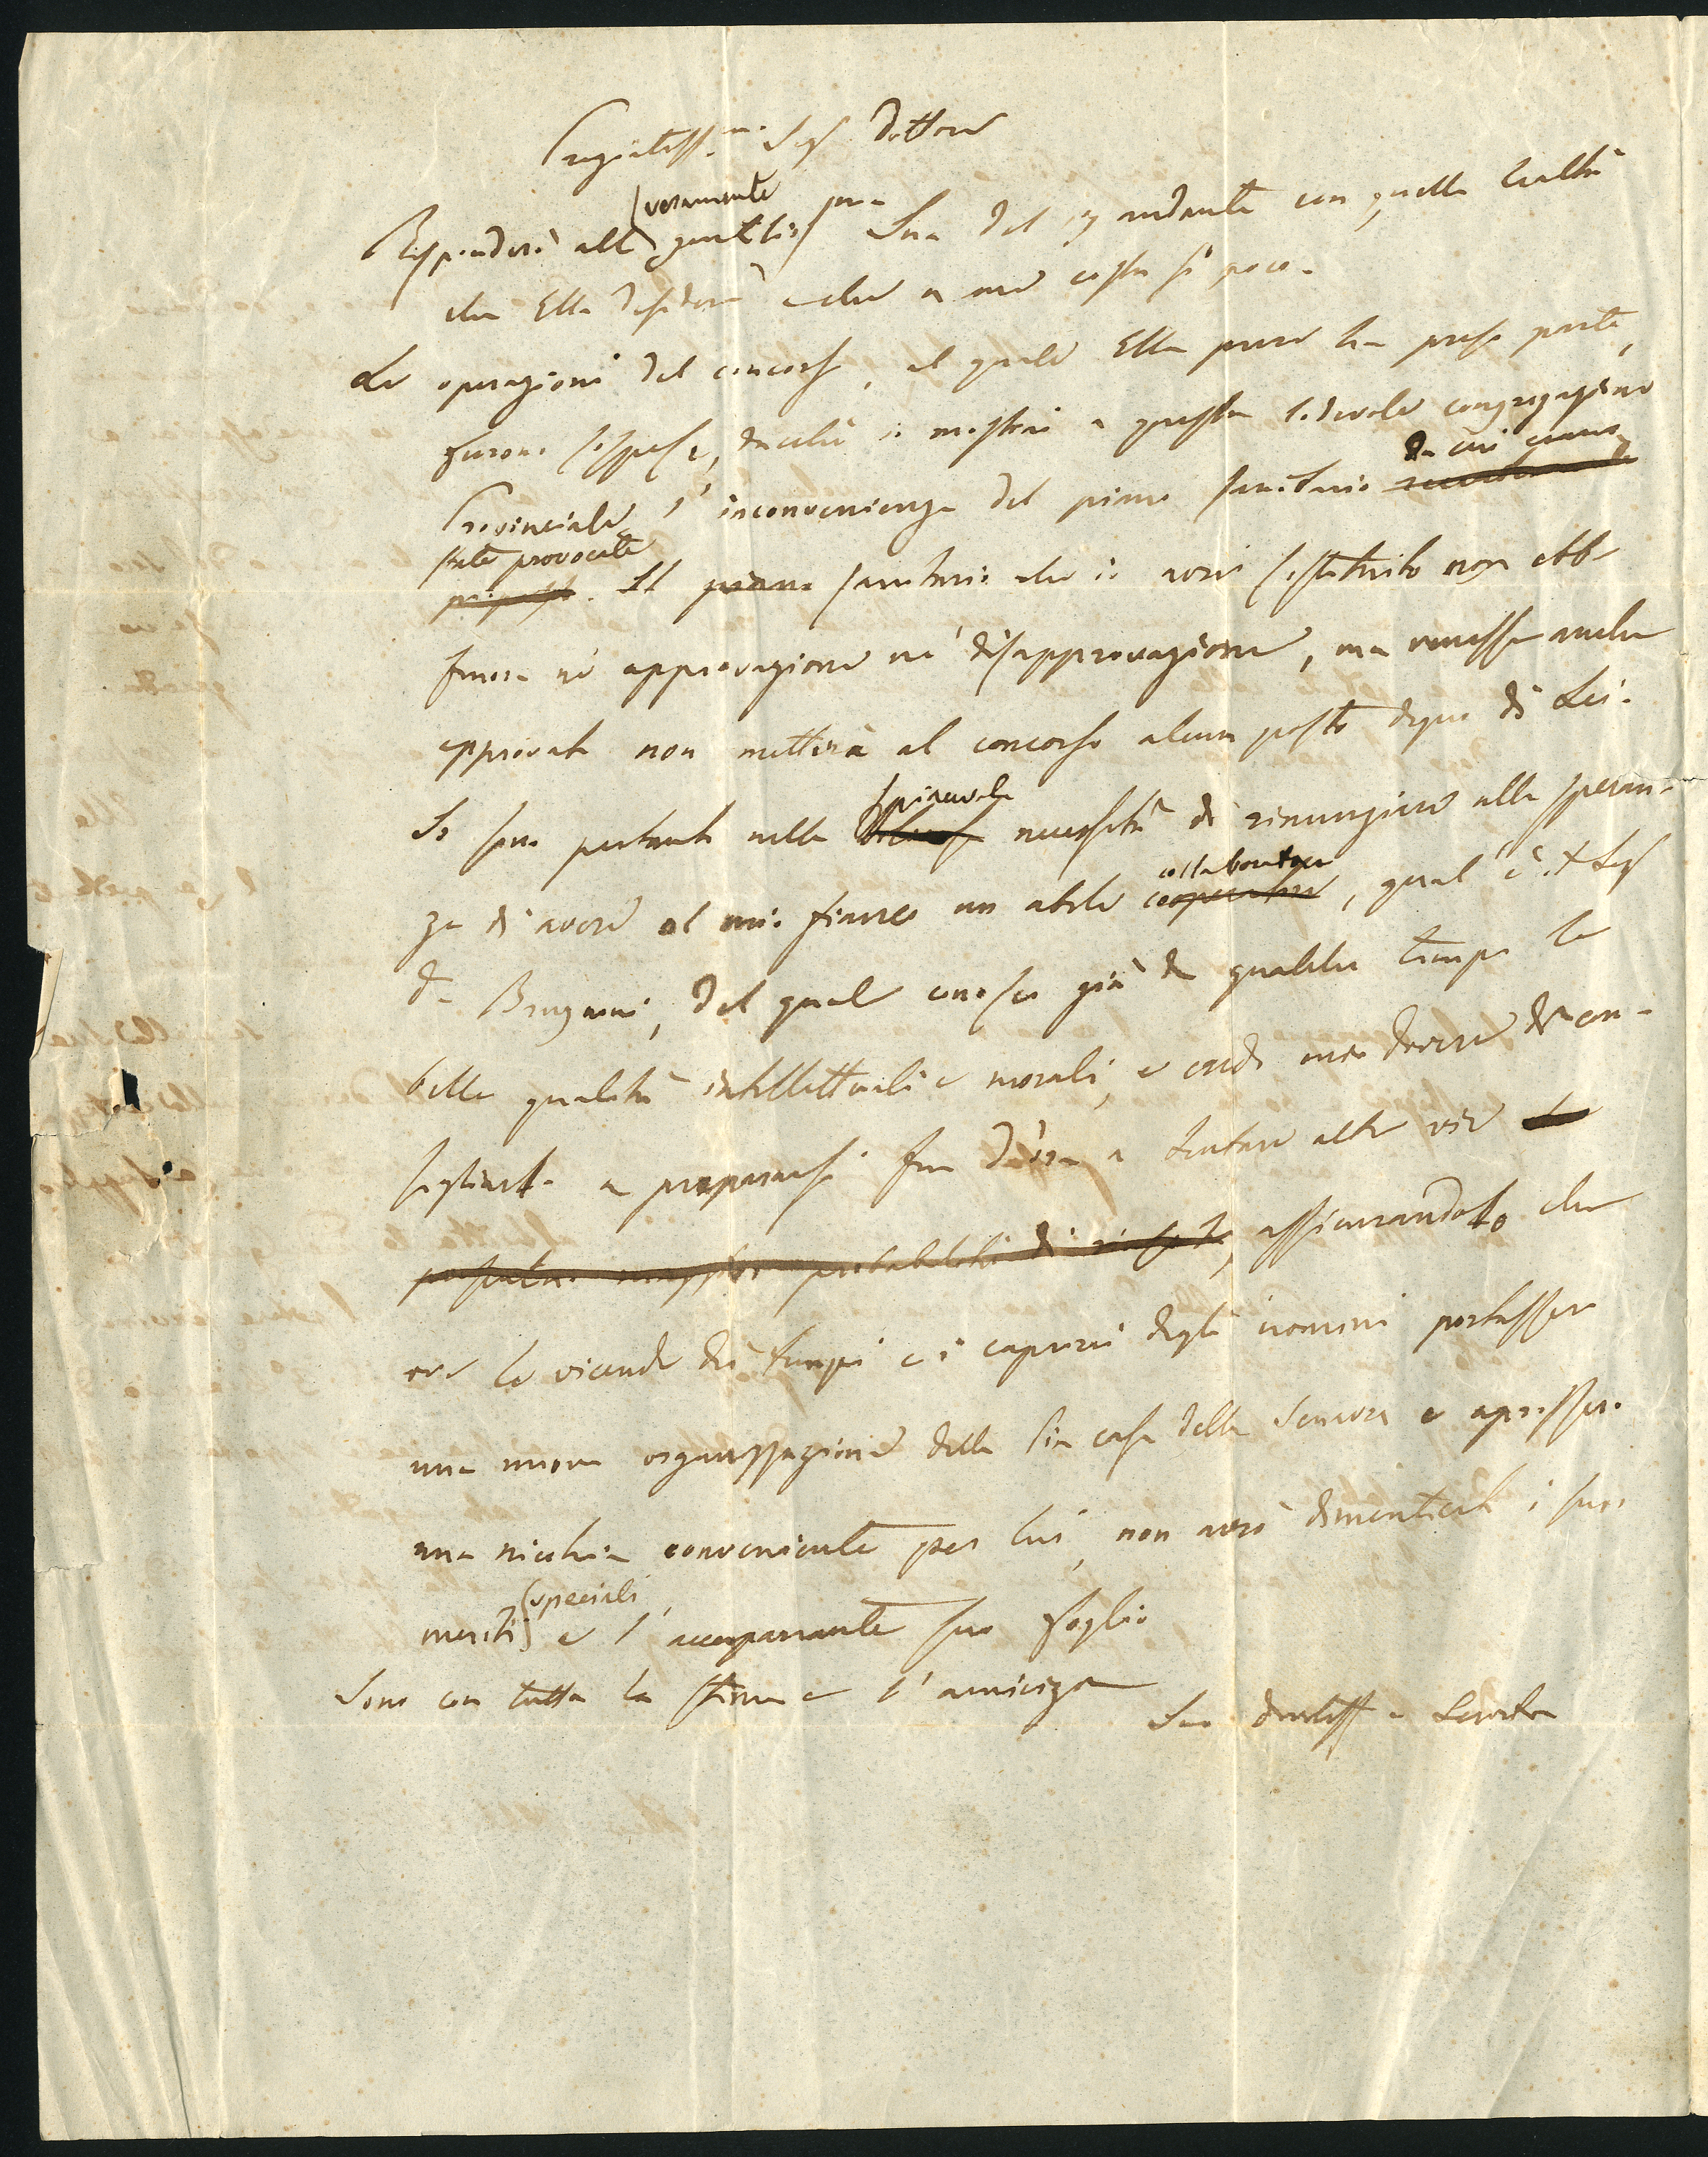 Pregiatiss.mo Sigr Dottore
Risponderò alla veramente gentiliss.ma Sua del 19 andante con quella lealtà
che Ella desidera e che a me costa sì poco.
Le operazioni del concorso, al quale Ella pure ha preso parte,
furono sospese, dacché io mostrai a questa lodevole congregazione
Provinciale l'inconvenienza del piano sanitario da cui erano
state provocate. Il piano sanitario che io avrei sostituito non ebbe
finora nè approvazione nè disapprovazione, ma venisse anche
approvato non metterà al concorso alcun posto degno di Lei.
Io sono pertanto nella spiacevole necessità di rinunziare alla speran-
za di avere al mio fianco un abile cooperatore collaboratore, qual è il Sigr
Dr Brugnoni, del quale conosco già da qualche tempo le
belle qualità intellettuali e morali, e credo mio dovere di con-
sigliarlo a prepararsi fin d'ora a tentare altre vie
possibilità di, assicurandolo che
ove le vicende dei tempi e i capricci degli uomini portassero
una nuova organizzazione della Pia casa della Senavra e aprissero
una nicchia conveniente per lui, non avrò dimenticato i suoi
meriti speciali, e l'accompagnante suo foglio
Sono con tutta la stima e l'amicizia
Suo devotiss